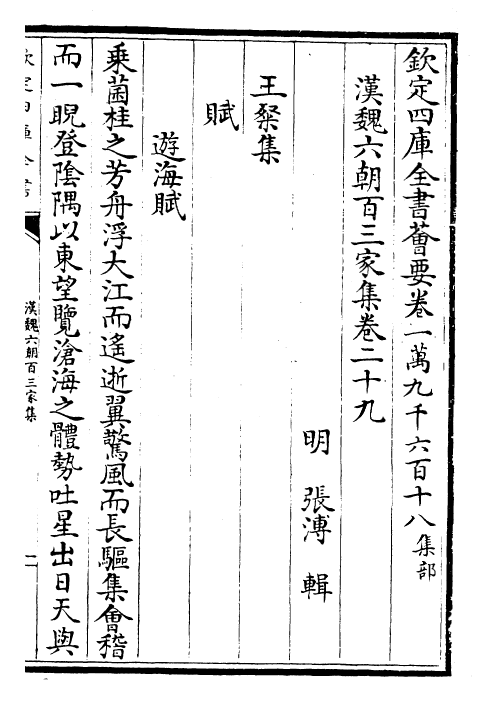 欽定四庫全書薈要卷一萬九千六百十八集部
漢魏六朝百三家集卷二十九
明 張溥 輯
王粲集
賦
遊海賦
乘菌桂之芳舟浮大江而遙逝翼驚風而長驅集會稽
而一睨登陰隅以東望覽滄海之體勢吐星出日天與
欽定四庫全書
漢魏六朝百三家集